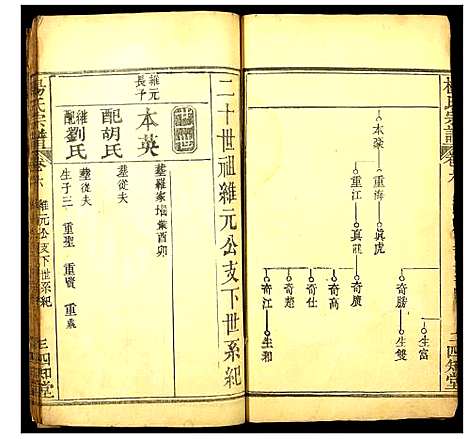 楊氏宗譜
卷六
二四知堂
本榮
重海
重江
真虎
真龍
奇勝
奇廣
奇高
奇仕
奇超
奇江
生富
生雙
生和
二十世祖維元公支下世系紀
維元長子
本英
墓羅家塆葉酉卯
配胡氏
墓從夫
繼配劉氏
墓從夫
生子三 重聖 重賢 重泰
楊氏宗譜
卷六
維元公支下世系紀
三四知堂